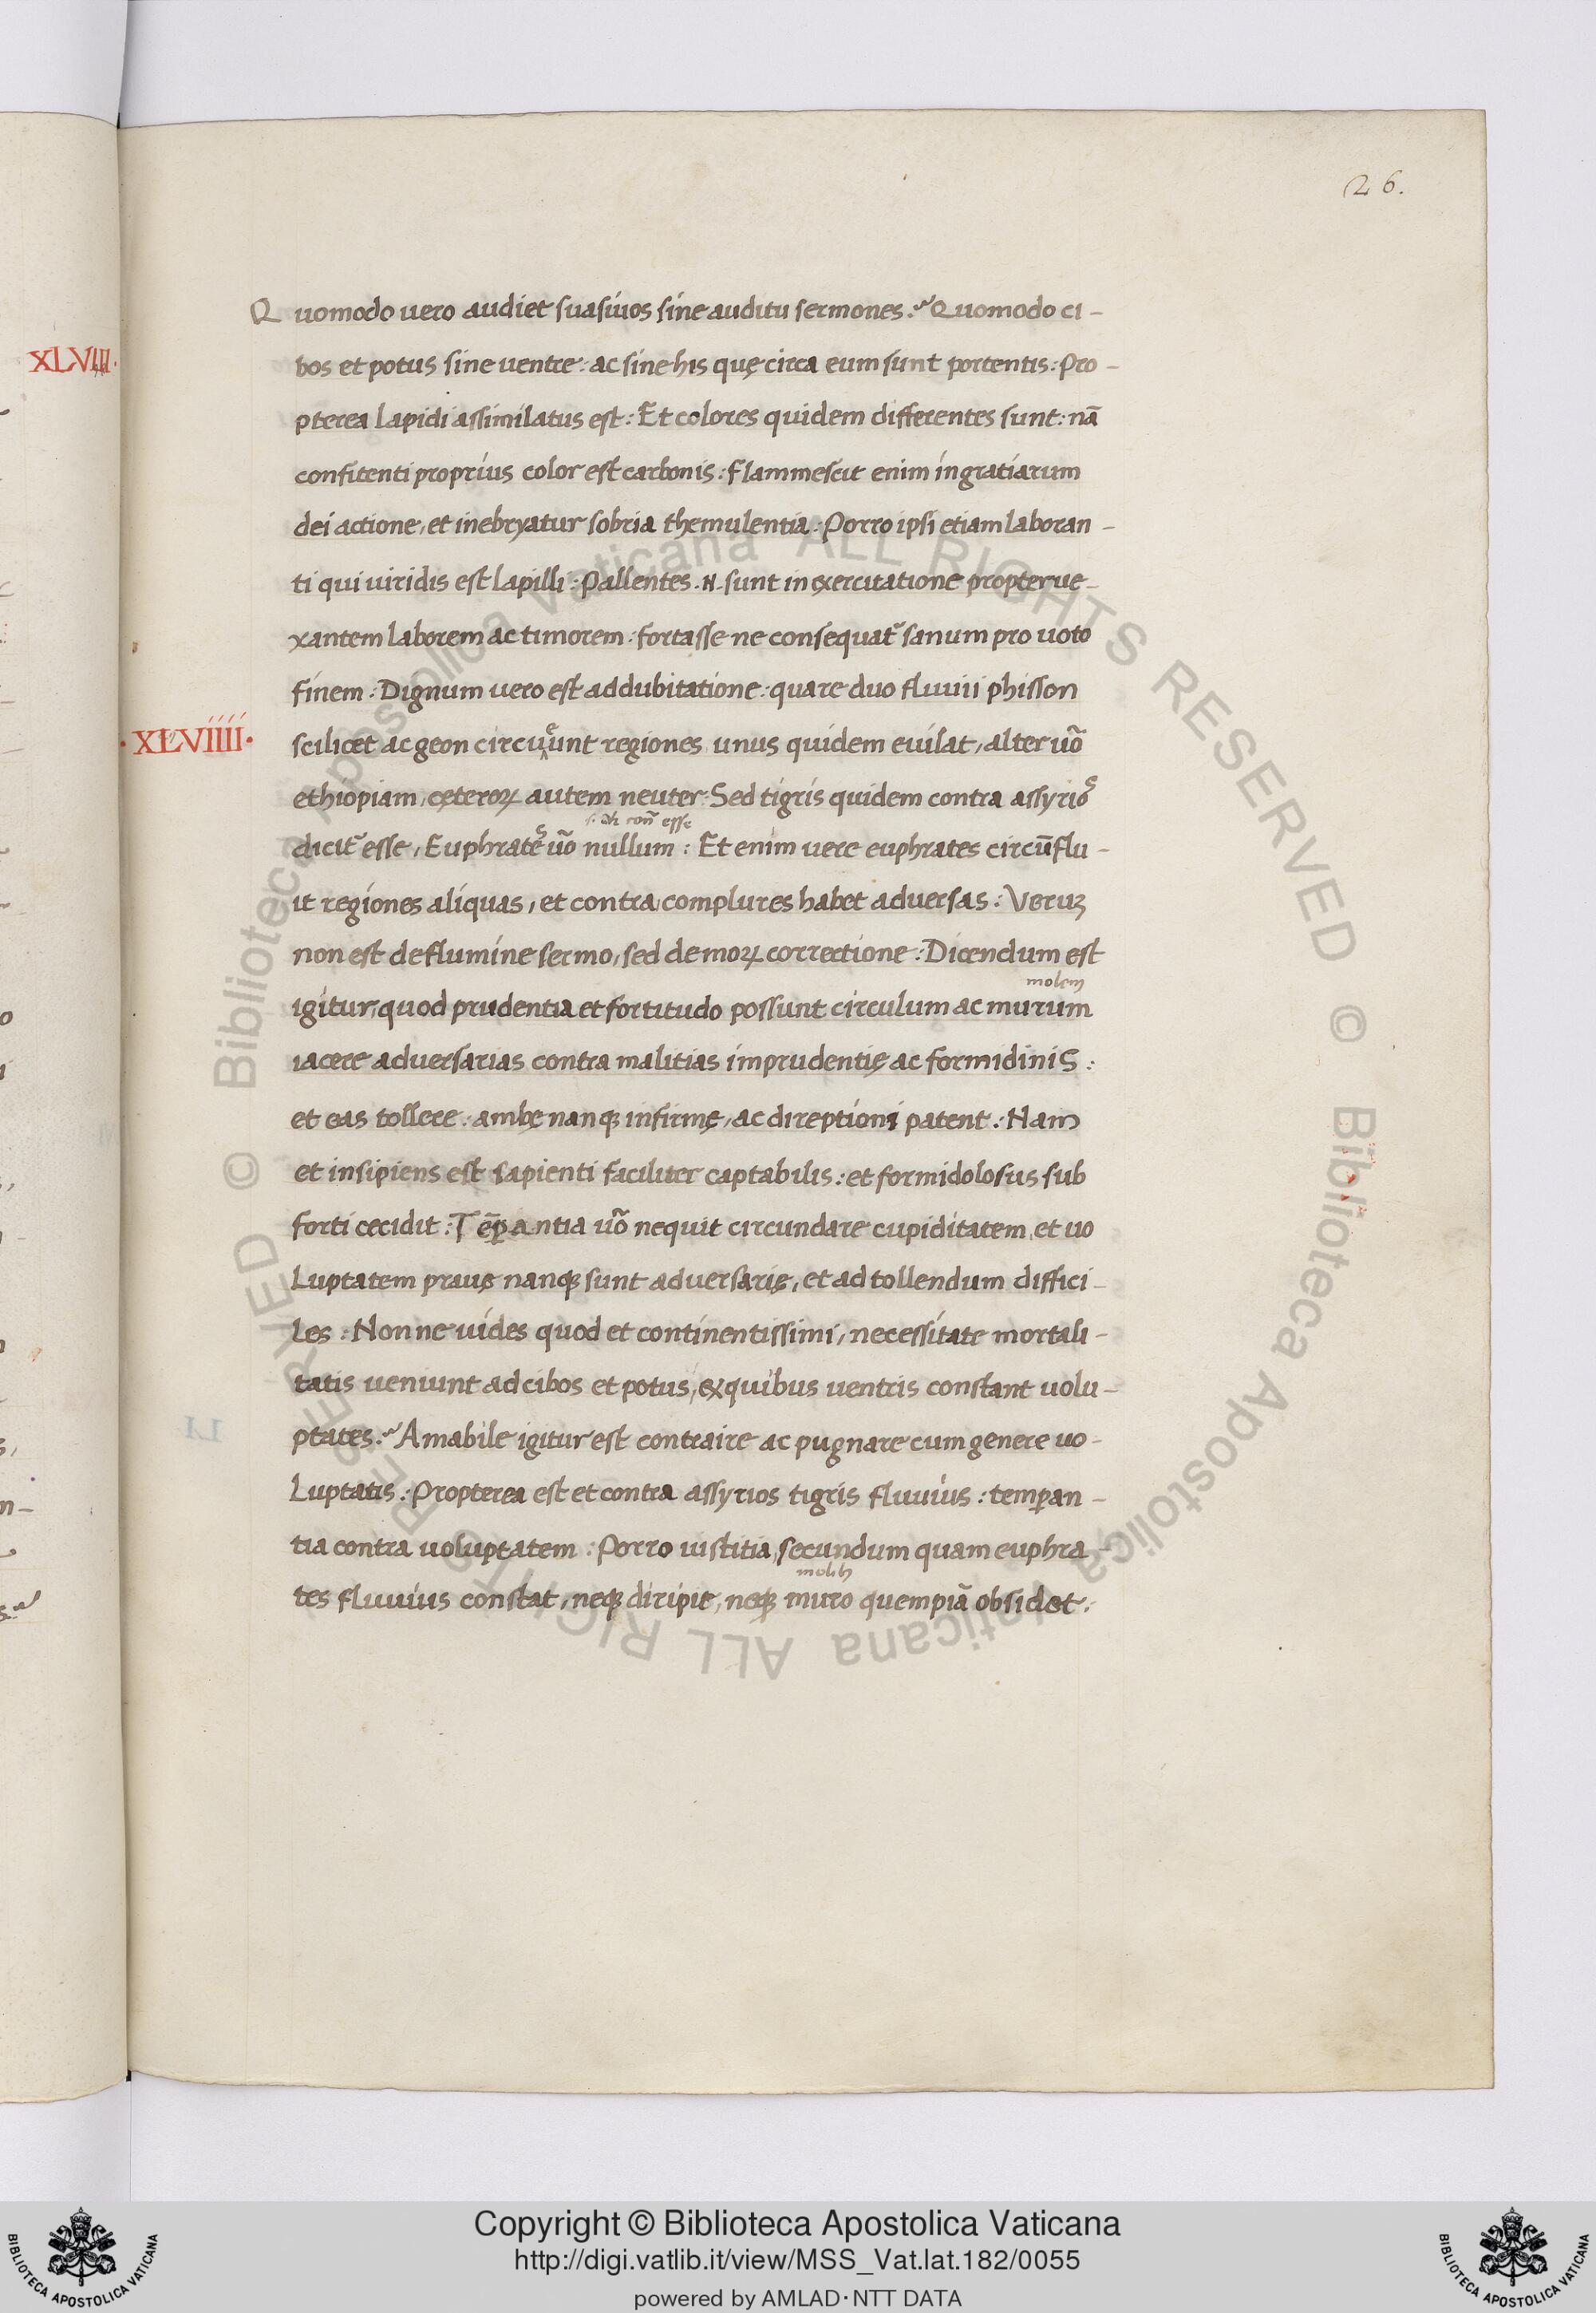 26.
Quomodo vero audiet suasiuos sine auditu sermones. Quomodo ci-
XLVIII.
bos et potus sine uentre: ac sine his quę circa eum sunt portentis: Pro-
pterea lapidi assimilatus est: Et colores quidem differentes sunt: nã
confitenti proprius color est carbonis: flammescit enim in gratiarum
dei actione, et inebryatur sobria themulentia: Porro ipsi etiam laboran-
ti qui uiridis est lapilli: Pallentes .N. sunt in exercitatione propter ue-
xantem laborem ac timorem: fortasse ne consequat᷒ sanum pro uoto
finem: Dignum uero est addubitatione: quare duo fluuii phisson
·XLVIIII·
scilicet ac geon circueunt regiones unus quidem euilat, alter uõ
ethiopiam, cęteroꝝ autem neuter: Sed tigris quidem contra assyrios
dicit᷒ esse, Euphrates uõ nullum: Et enim uere euphrates circũflu-
it regiones aliquas, et contra complures habet aduersas: Veruꝫ
non est de flumine sermo, sed de moꝝ correctione: Dicendum est
molem
igitur, quod prudentia et fortitudo possunt circulum ac murum
iacere aduersarias contra malitias imprudentię ac formidinis:
et eas tollere: ambę nanqꝫ infirmę, ac direptioni patent: Nam
et insipiens est sapienti faciliter captabilis: et formidolosus sub
forti cecidit: Tẽꝑantia uõ nequit circundare cupiditatem, et uo
luptatem prauę nanqꝫ sunt aduersarię, et ad tollendum diffici-
les: Nonne uides quod et continentissimi, necessitate mortali-
tatis ueniunt ad cibos et potus, ex quibus uentris constant uolu-
ptates. Amabile igitur est contraire ac pugnare cum genere uo-
luptatis: Propterea est et contra assyrios tigris fluuius: temꝑan-
tia contra uoluptatem: Porro iustitia, secundum quam euphra-
tes fluuius constat, neqꝫ diripit, neqꝫ muro quempiã obsidet:
© Biblioteca Apostolica Vaticana ALL RIGHTS RESERVED
© Biblioteca Apostolica Vaticana ALL RIGHTS RESERVED
Copyright © Biblioteca Apostolica Vaticana
http://digi.vatlib.it/view/MSS_Vat.lat.182/0055
powered by AMLAD·NTT DATA
BIBLIOTECA APOSTOLICA VATICANA
BIBLIOTECA APOSTOLICA VATICANA